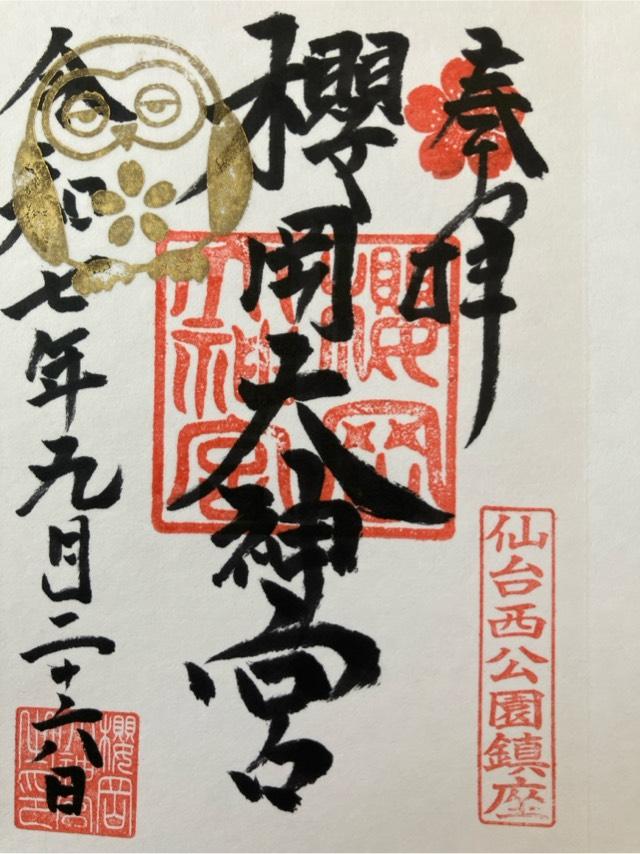 奉拝
仙台西公園鎮座
櫻岡天神宮
櫻岡天神宮
令和七年九月二十六日